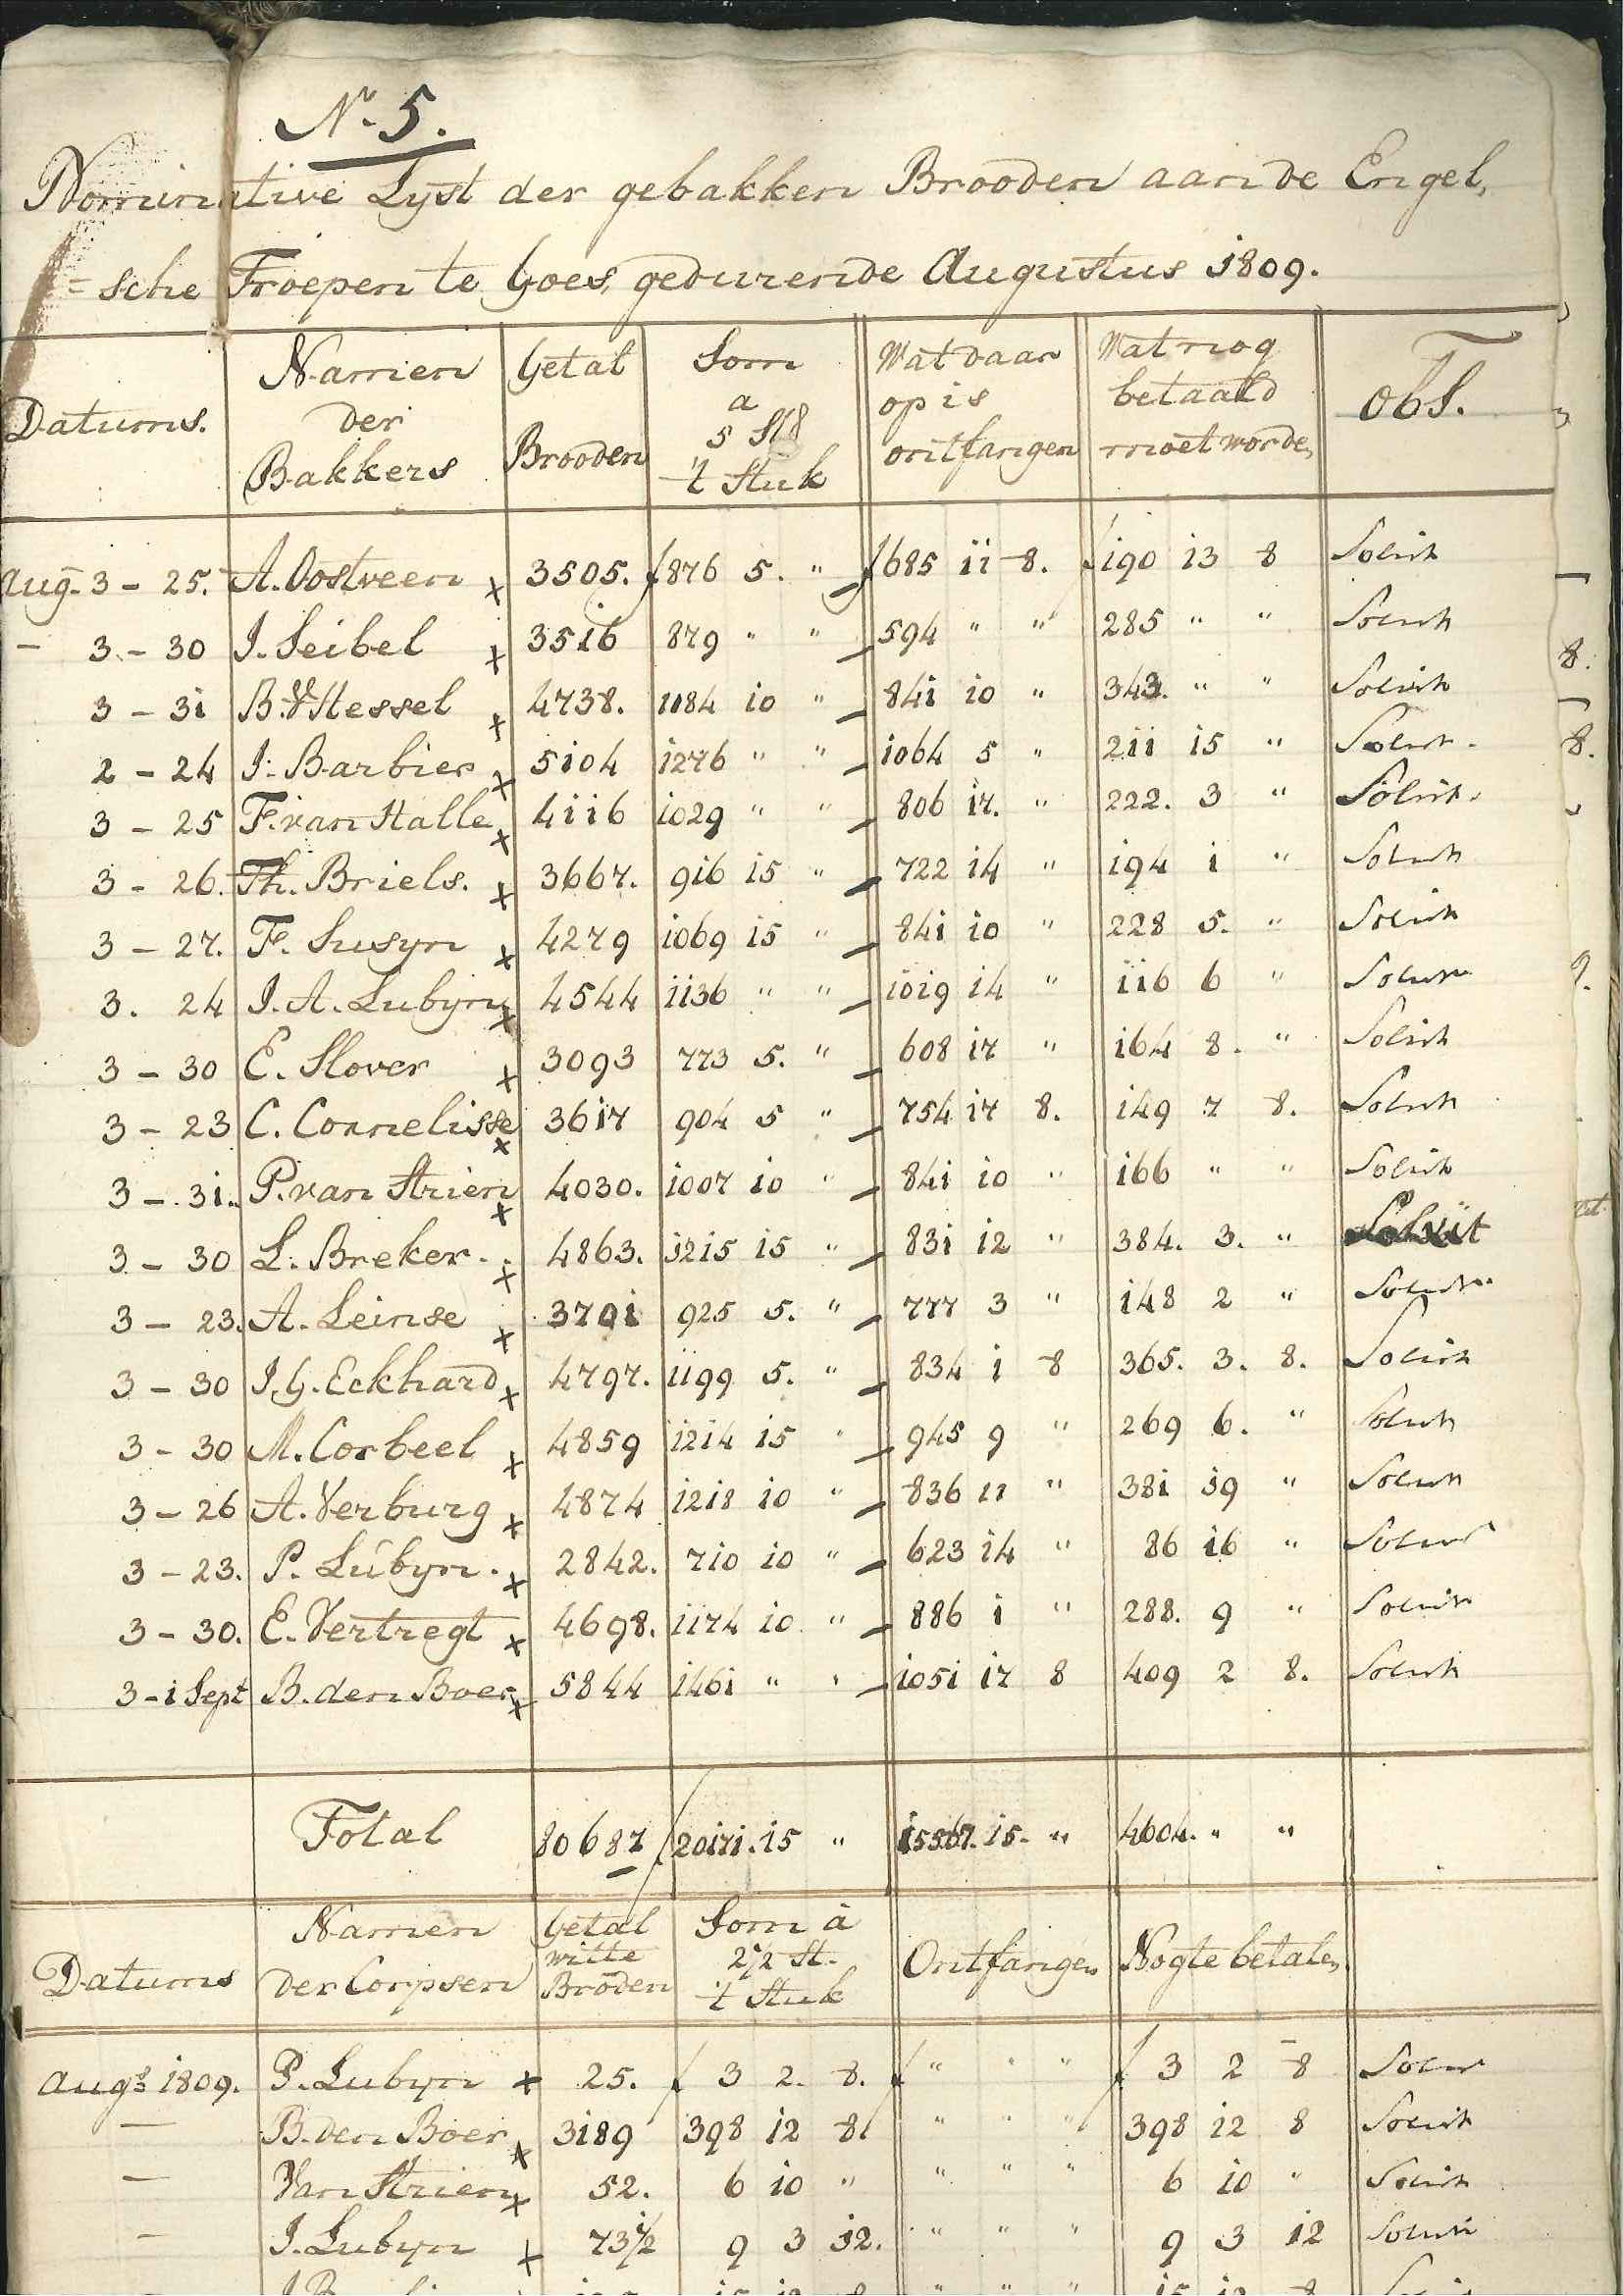 No. 5.
Nominative Lyst der gebakken Brooden aan de Engel,
=sche Troepen te Goes, gedurende Augustus 1809.
Datums. | Namen der Bakkers | Getal Brooden | Som a 5 St8 't Stuk | Wat daar op is ontfangen | Wat nog betaald moet worden | obs.
Aug. 3 - 25. A. Oostveen x 3505. f 876 5. " f 685 11 8. f 190 13 8 Solvit
- 3 - 30 J. Seibel x 3516 879 " " 594 " " 285 " " Solvit
3 - 31 B. V Hessel x 4738. 1184 10 " 841 10 " 343. " " Solvit
2 - 24 J. Barbier x 5104 1276 " " 1064 5 " 211 15 " Solvit.
3 - 25 F. van Halle x 4116 1029 " " 806 17. " 222. 3 " Solvit.
3 - 26. Th. Briels. x 3667. 916 15 " 722 14 " 194 1 " Solvit
3 - 27. F. Susyn x 4279 1069 15 " 841 10 " 228 5. " Solvit
3. 24 J. A. Lubyn x 4544 1136 " " 1019 14 " 116 6 " Solvit
3 - 30 E. Slover x 3093 773 5. " 608 17 " 164 8. " Solvit
3 - 23 C. Cornelisse x 3617 904 5 " 754 17 8. 149 7 8. Solvit
3 - 31. P. van Strien x 4030. 1007 10 " 841 10 " 166 " " Solvit
3 - 30 L. Breker. x 4863. 1215 15 " 831 12 " 384. 3. " Solvit
3 - 23. A. Leinse x 3701 925 5. " 777 3 " 148 2 " Solvit
3 - 30 J. G. Eckhard x 4797. 1199 5. " 834 1 8 365. 3. 8. Solvit
3 - 30 M. Corbeel x 4859 1214 15 " 945 9 " 269 6. " Solvit
3 - 26 A. Verburg x 4874 1218 10 " 836 11 " 381 19 " Solvit
3 - 23. P. Lubyn. x 2842. 710 10 " 623 14 " 86 16 " Solvit
3 - 30. E. Vertregt x 4698. 1174 10. " 886 1 " 288. 9 " Solvit
3 - 1 Sept B. den Boer x 5844 1461 " " 1051 17 8 409 2 8. Solvit
Total 80687 f 20171. 15 " 15567. 15. " 4604. " "
Datums | Namen der Corpsen | Getal witte Broden | Som à 2 1/2 St. 't Stuk | Ontfangen | Nog te betalen
Augs 1809. P. Lubyn x 25. f 3 2. 8. f " " " f 3 2 8 Solvit
- B. den Boer x 3189 398 12 8. " " " 398 12 8 Solvit
- Van Strien x 52. 6 10 " " " " 6 10 " Solvit
- J. Lubyn x 73 1/2 9 3 12. " " " 9 3 12 Solvit